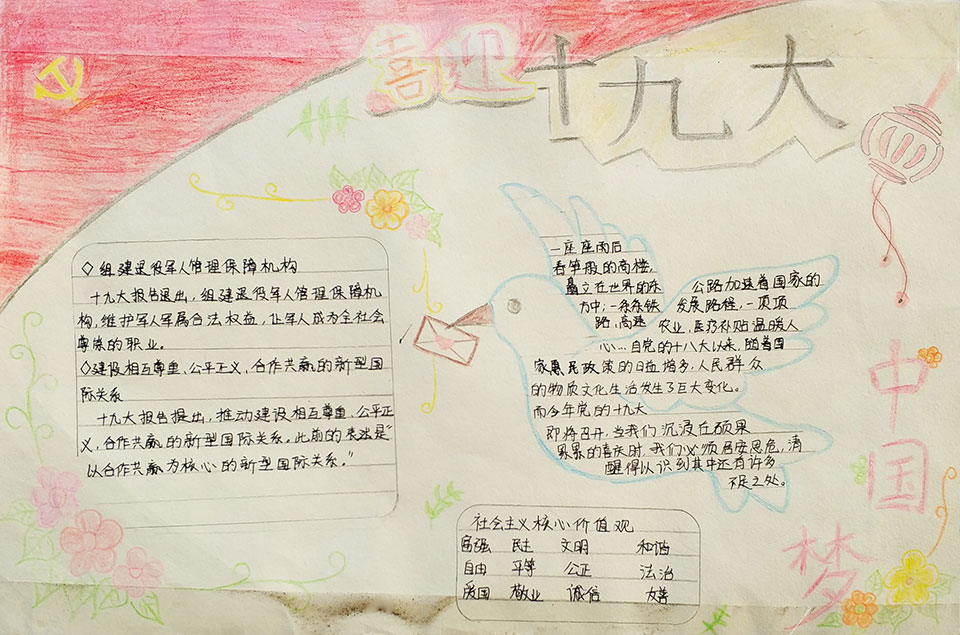 喜迎十九大
◇组建退役军人管理保障机构
十九大报告退出，组建退役军人管理保障机
构，维护军人军属合法权益，让军人成为全社会
尊崇的职业。
◇建设相互尊重、公平正义，合作共赢的新型国
际关系
十九大报告提出，推动建设相互尊重、公平正
义，合作共赢的新型国际关系。此前的表述是“
以合作共赢为核心的新型国际关系。”
一座座雨后
春笋般的高楼，
矗立在世界的东
方中；一条条铁
路，高速
公路加速着国家的
发展路程，一项项
农业，医疗补贴温暖人
心…自党的十八大以来，随着国
家惠民政策的日益增多，人民群众
的物质文化生活发生了巨大变化。
而今年党的十九大
即将召开，当我们沉浸在硕果
累累的喜庆时，我们必须居安思危，清
醒得认识到其中还有许多
不足之处。
社会主义核心价值观
富强 民主 文明 和谐
自由 平等 公正 法治
爱国 敬业 诚信 友善
中国梦